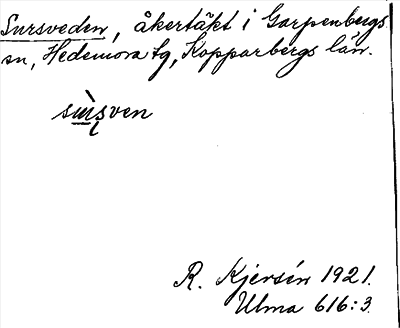 Sursveden, åkertäkt i Garpenbergs
sn, Hedemora tg, Kopparbergs län.
R. Kjersén 1921.
Ulma 616:3.